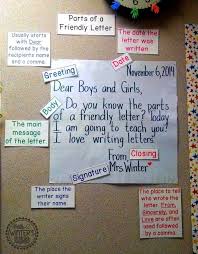 Parts of a
Friendly Letter
Usually starts
with Dear
followed by the
recipients name
and a comma.
The date the
letter was
written
Date
Greeting
November 6, 2014
Dear Boys and Girls,
Body
Do you know the parts
of a friendly letter? Today
I am going to teach you!
I love writing letters!
The main
message of the
letter
From,
Closing
Mrs Winter
Signature
The place the
writer signs
their name.
The place to tell
who wrote the
letter. From,
Sincerely, and
Love are often
used followed
by a comma.